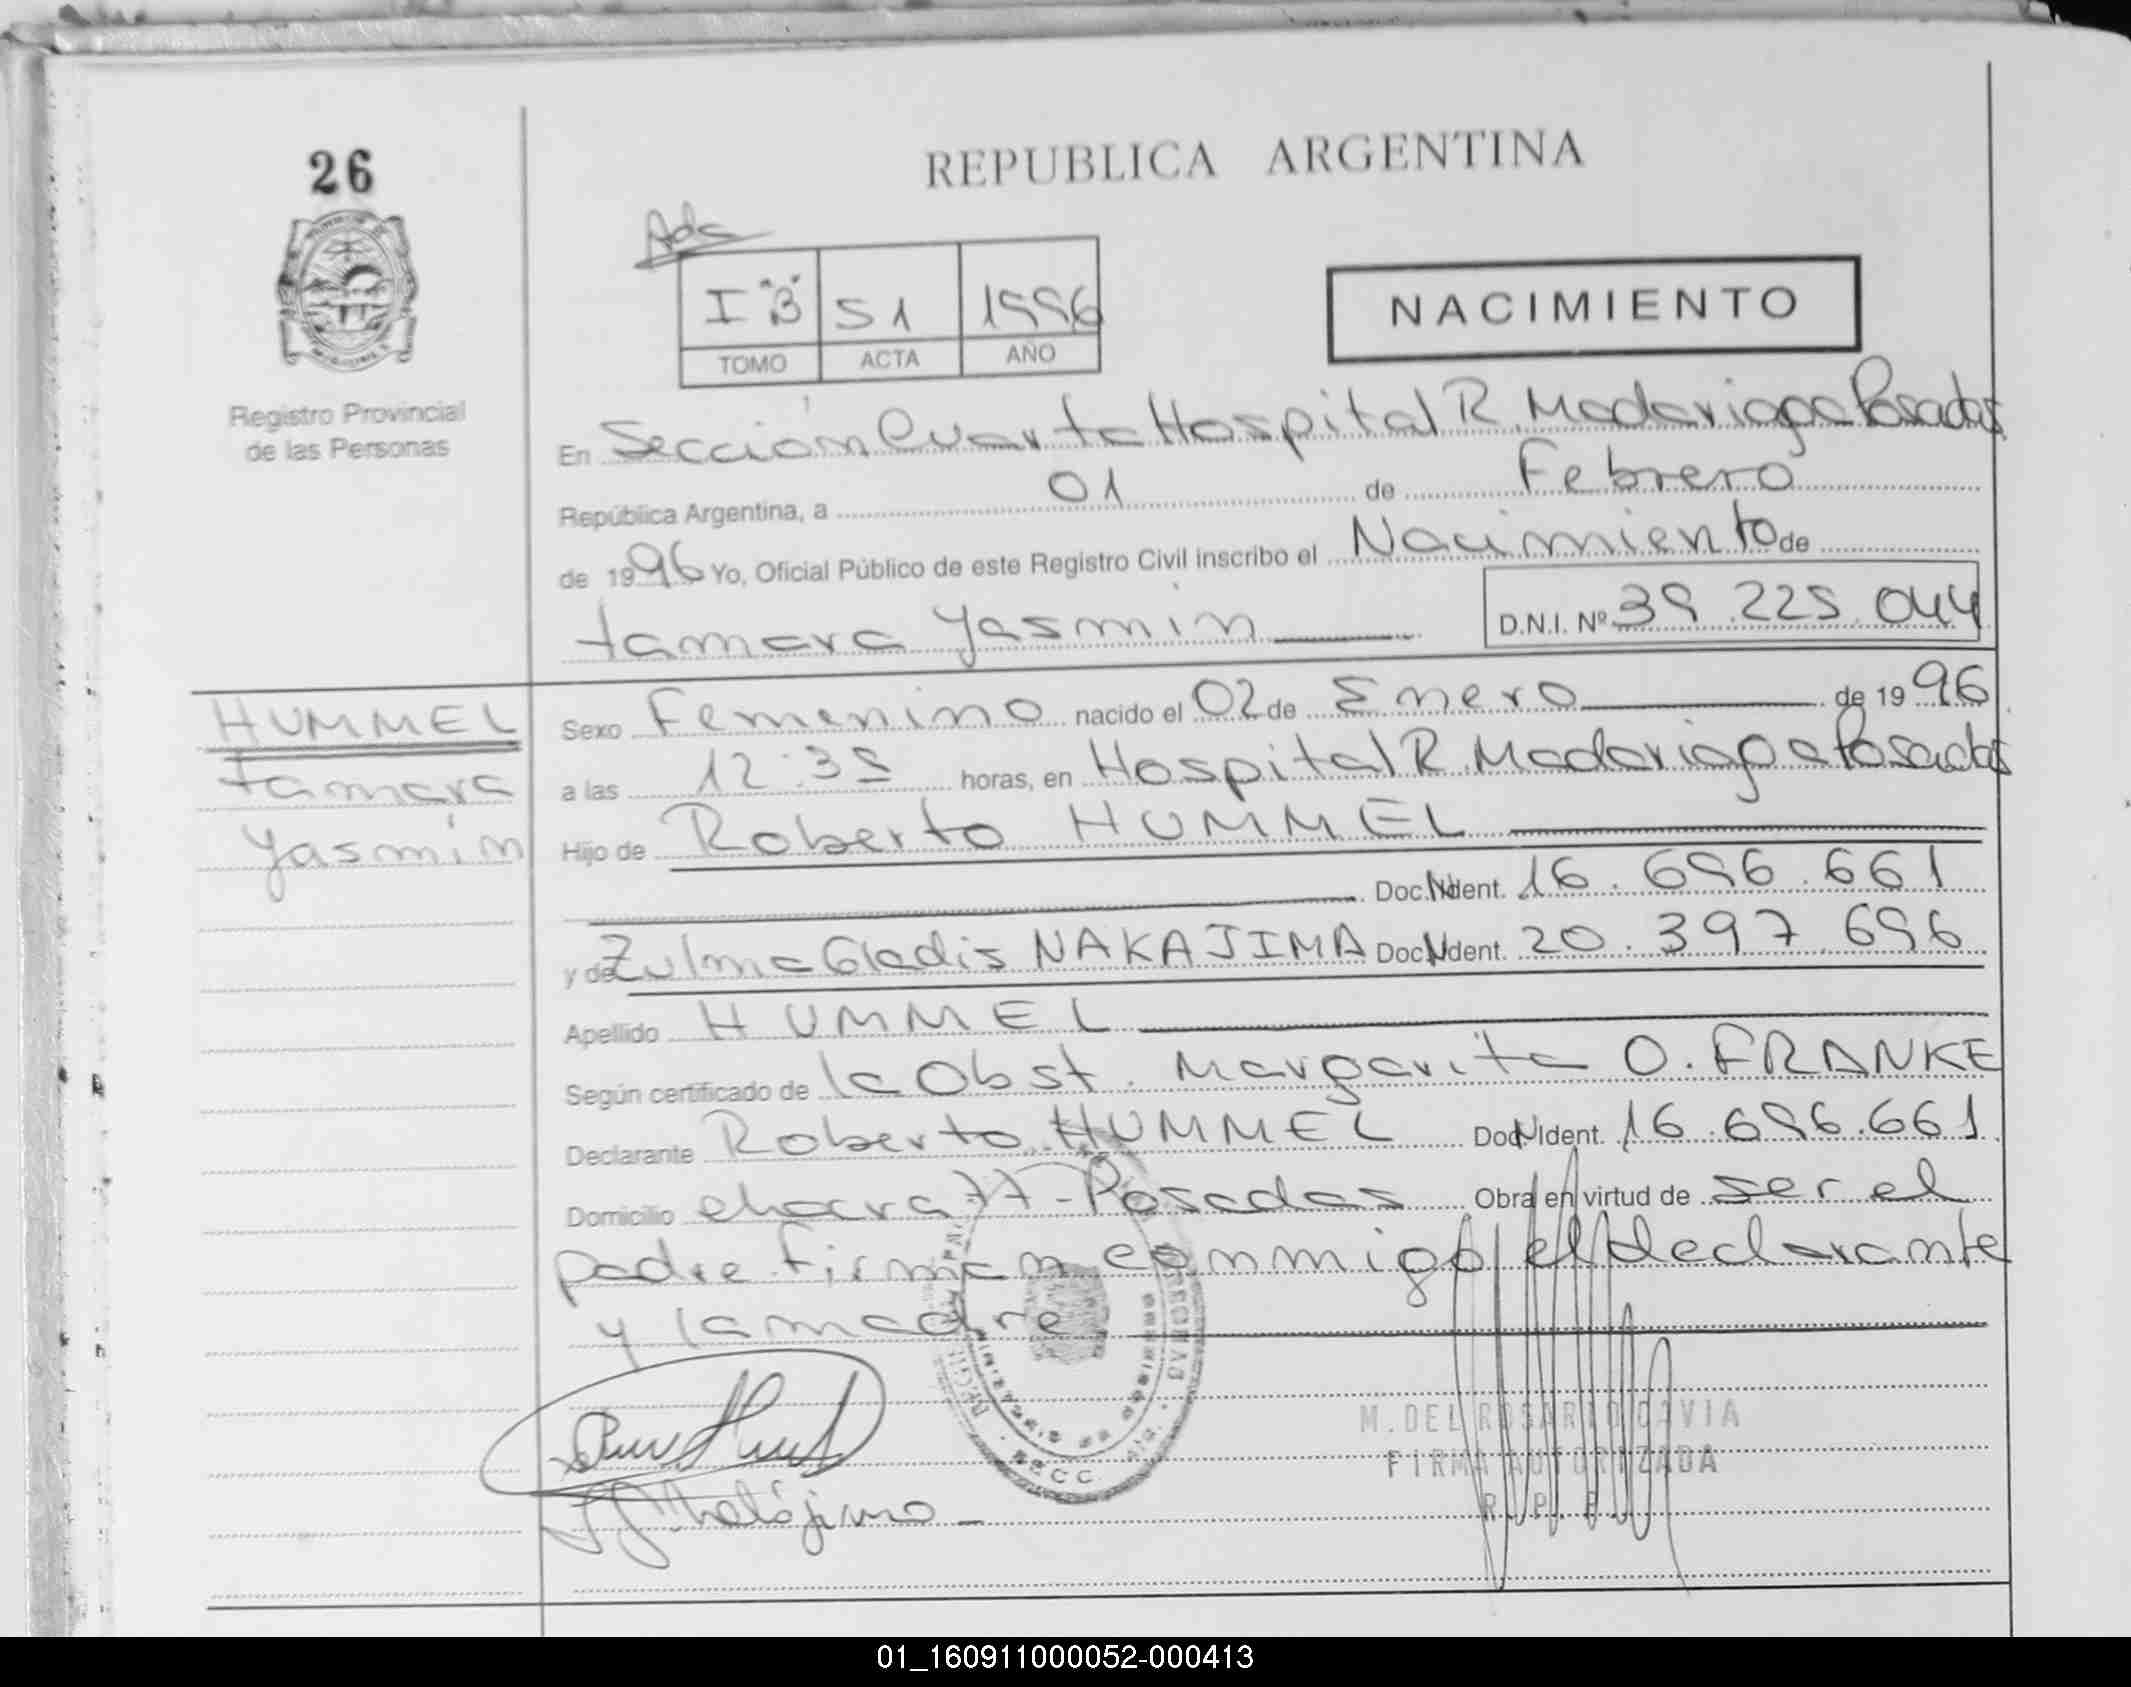 26
REPUBLICA ARGENTINA
Ads
I "B" 51 1996
TOMO ACTA AÑO
NACIMIENTO
Registro Provincial
de las Personas
En Sección Cuarta Hospital R. Madariaga Posadas
República Argentina, a 01 de Febrero
de 1996 Yo, Oficial Público de este Registro Civil inscribo el Nacimiento de
tamara Yasmin D.N.I. Nº 39.225.044
HUMMEL
tamara
Yasmin
Sexo Femenino nacido el 02 de Enero de 1996
a las 12:35 horas, en Hospital R. Madariaga Posadas
Hijo de Roberto HUMMEL
Doc. Ident. 16.696.661
y de Zulma Gladis NAKAJIMA Doc. Ident. 20.397.696
Apellido HUMMEL
Según certificado de la Obst. Margarita O. FRANKE
Declarante Roberto HUMMEL Doc. Ident. 16.696.661
Domicilio chacra 77 - Posadas Obra en virtud de ser el
padre. firman conmigo el declarante
y la madre
M. DEL ROSARIO CAVIA
FIRMA AUTORIZADA
R. P. P.
01_160911000052-000413